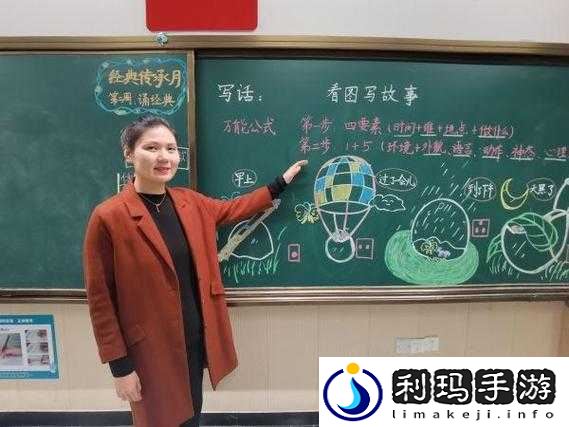 经典传承月
第二周 诵经典
写话：
看图写故事
万能公式 第一步 四要素（时间+谁+地点+做什么）
第二步 1+5（环境+外貌、语言、动作、神态、心理
早上
过了会儿
到了下午
天黑了
利玛手游
limakeji.info